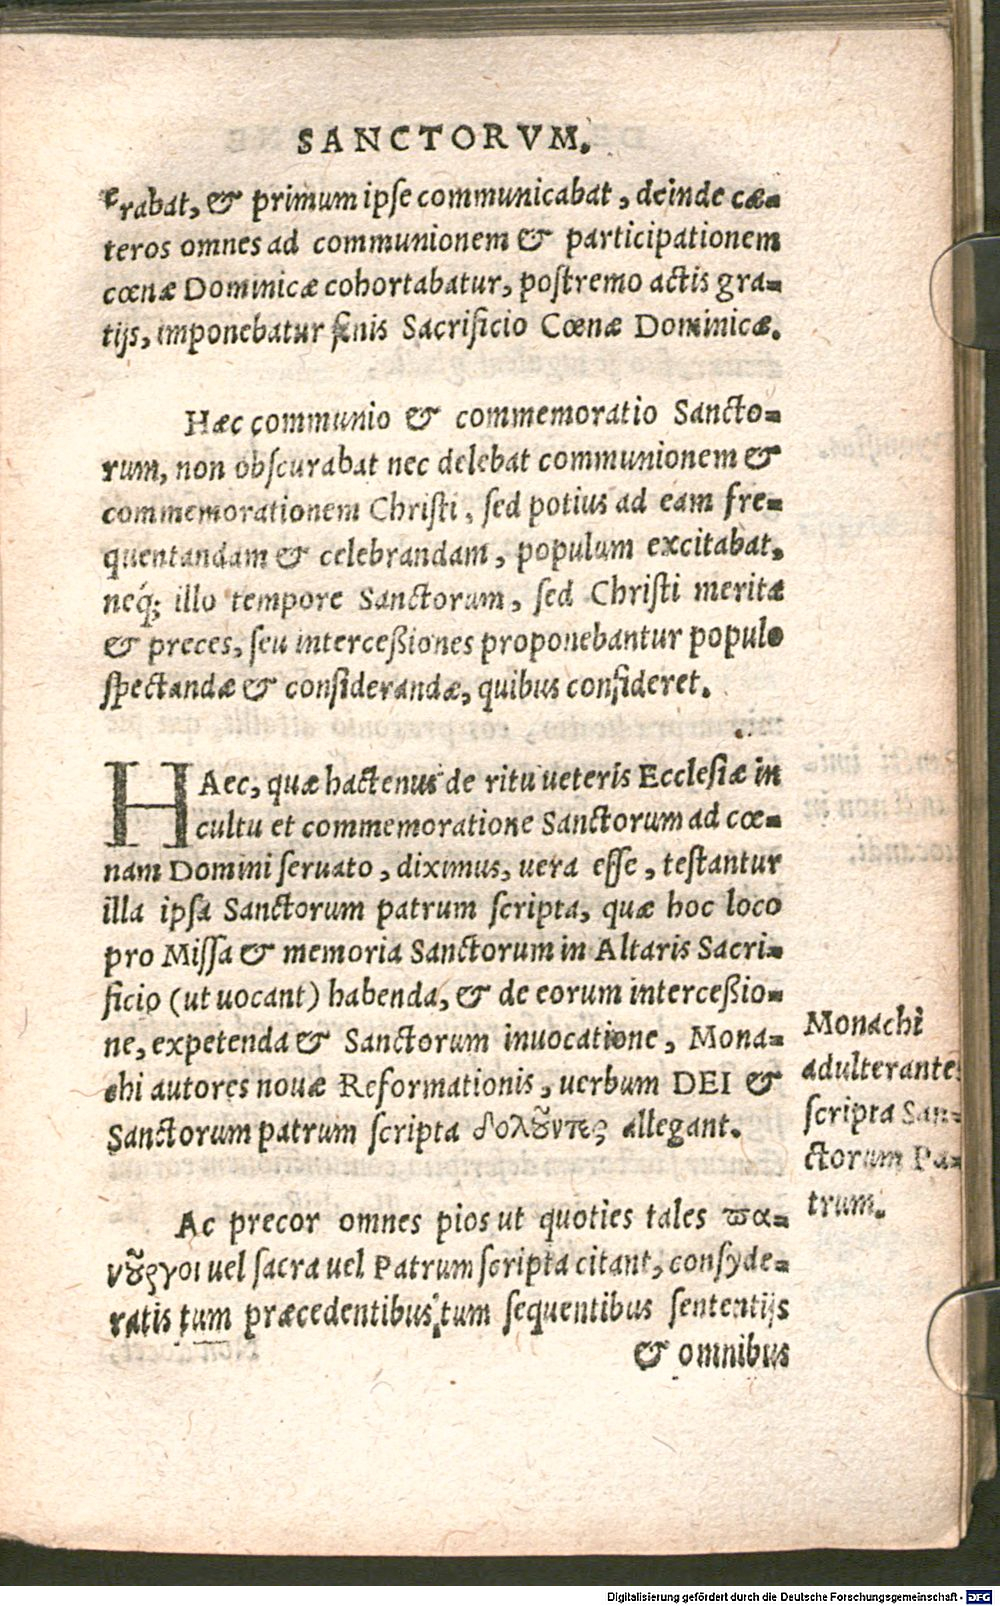 SANCTORVM.
rabat, & primum ipse communicabat, deinde cæ-
teros omnes ad communionem & participationem
cœnæ Dominicæ cohortabatur, postremo actis gra-
tijs, imponebatur finis Sacrificio Cœnæ Dominicæ.
Hæc communio & commemoratio Sancto-
rum, non obscurabat nec delebat communionem &
commemorationem Christi, sed potius ad eam fre-
quentandam & celebrandam, populum excitabat,
neq́; illo tempore Sanctorum, sed Christi merita
& preces, seu interceßiones proponebantur populo
spectandæ & considerandæ, quibus confideret.
HAec, quæ hactenus de ritu ueteris Ecclesiæ in
cultu et commemoratione Sanctorum ad cœ-
nam Domini seruato, diximus, uera esse, testantur
illa ipsa Sanctorum patrum scripta, quæ hoc loco
pro Missa & memoria Sanctorum in Altaris Sacri-
ficio (ut uocant) habenda, & de eorum interceßio-
ne, expetenda & Sanctorum inuocatione, Mona-
chi autores nouæ Reformationis, uerbum DEI &
Sanctorum patrum scripta δολοῦντες allegant.
Monachi
adulterantes
scripta San-
ctorum Pa-
trum.
Ac precor omnes pios ut quoties tales πα-
νοῦργοι uel sacra uel Patrum scripta citant, consyde-
ratis tum præcedentibus, tum sequentibus sententijs
& omnibus
Digitalisierung gefördert durch die Deutsche Forschungsgemeinschaft - DFG